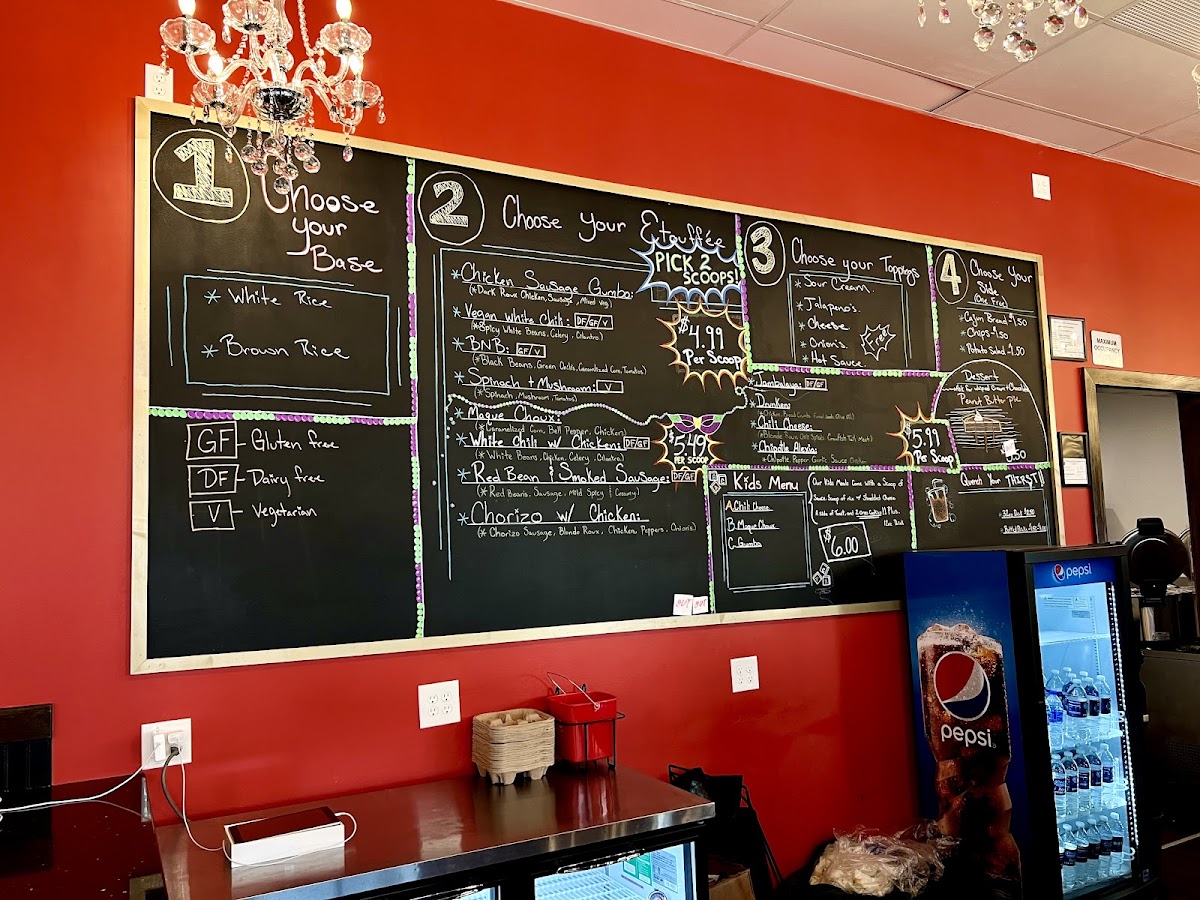 1
Choose
your
Base
* White Rice
* Brown Rice
GF - Gluten free
DF - Dairy free
V - Vegetarian
2
Choose your Etouffée
PICK 2
SCOOPS!
* Chicken Sausage Gumbo:
(* Dark Roux Chicken, Sausage, Mixed Veg)
* Vegan White Chili: DF/GF/V
(* Spicy White Beans, Celery, Cilantro)
* BNB: GF/V
(* Black Beans, Green Chilis, Caramelized Corn, Tomatoes)
* Spinach + Mushroom: V
(* Spinach, Mushroom, Tomatoes)
$4.99
Per Scoop
* Maque Choux:
(* Caramelized Corn, Bell Pepper, Chicken)
* White Chili w/ Chicken: DF/GF
(* White Beans, Chicken, Celery, Cilantro)
* Red Bean & Smoked Sausage: DF/GF
(* Red Beans, Sausage, Mild Spicy & Creamy)
* Chorizo w/ Chicken:
(* Chorizo Sausage, Blonde Roux, Chicken, Peppers, Onions)
$5.49
PER SCOOP
3
Choose your Toppings
* Sour Cream
* Jalapeno's
* Cheese
* Onion's
* Hot Sauce
Free
* Jambalaya: DF/GF
* Drunken:
* Chili Cheese:
* Chipotle Alexia:
$5.99
Per Scoop
4
Choose Your
Side
(One Free)
* Cajun Bread $1.50
* Chips $1.50
* Potato Salad $1.50
Dessert
Peanut Butter pie
Kids Menu
A. Chili Cheese
B. Maque Choux
C. Gumbo
Our Kids Meals Come with a Scoop of
$6.00
Quench Your THIRST!!
MAXIMUM
OCCUPANCY
pepsi
pepsi